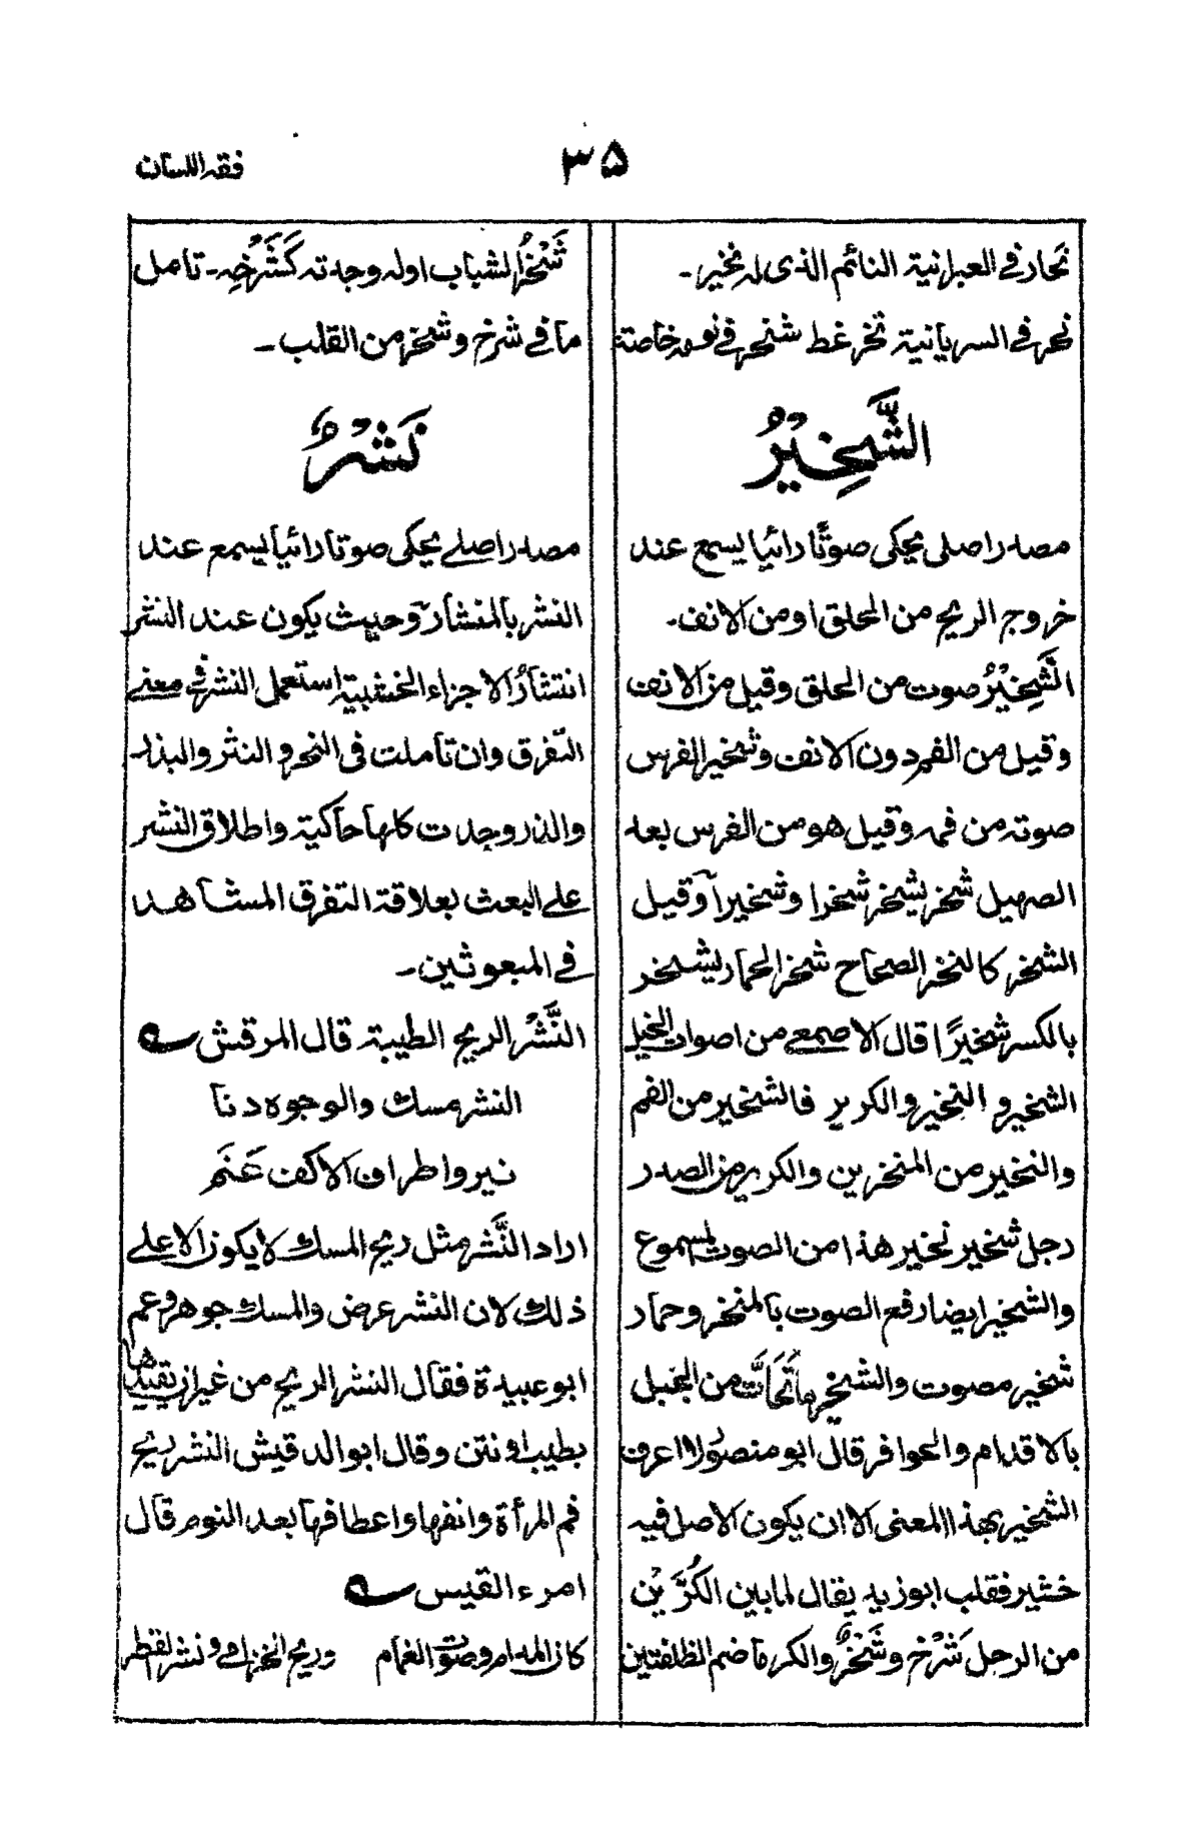 فقه اللسان
٣٥
نحار فی العبرانیة النائم الذی له نخیر۔
نحر فی السریانیة نخر غط شنحر فی نومه خاصة
الشَّخِیْرُ
مصدر اصلی یحکی صوتًا رائیا یسمع عند
خروج الریح من الحلق او من الانف۔
الشَّخِیْرُ صوت من الحلق وقیل من الانف
وقیل من الفم دون الانف وشخیر الفرس
صوته من فمه وقیل هو من الفرس بعد
الصهیل شخر یشخر شخرا وشخیرا وقیل
الشخر کالنخر الصحاح شخر الحمار یشخر
بالکسر شخیرًا قال الاصمعی من اصوات الخیل
الشخیر و النخیر والکریر فالشخیر من الفم
والنخیر من المنخرین والکریر من الصدر
رجل شخیر نخیر هذا من الصوت المسموع
والشخیر ایضا رفع الصوت بالمنخر وحمار
شخیر مصوت والشخیر ماتَحَاتَّ من الجبل
بالاقدام والحوافر قال ابو منصور لا اعرف
الشخیر بهذا المعنی الا ان یکون الاصل فیه
خشیر فقلب ابو زید یقال لما بین الکُرَّیْن
من الرجل شَرْخ وشَخْرٌ والکر ما ضم الظلفتین
شَخْرُ الشباب اوله وجدته کَشَرْخِه۔ تامل
ما فی شرخ وشخر من القلب۔
نَشْرٌ
مصدر اصلے یحکی صوتا رائیا یسمع عند
النشر بالمنشار وحیث یکون عند النشر
انتشار الاجزاء الخشبیة استعمل النشر فی معنے
التفرق وان تاملت فی النحر والنثر والبذر
والذر وجدت کلها حاکیة واطلاق النشر
علے البعث بعلاقة التفرق المشاهد
فی المبعوثین۔
النَّشْر الریح الطیبة قال المرقش
النشر مسك والوجوه دنا
نیر واطراف الاکف عَنَم
اراد النَّشر مثل ریح المسك لایکون الا علے
ذلك لان النشر عرض والمسك جوهر وعم
ابوعبیدة فقال النشر الریح من غیر ان یقیدها
بطیب او نتن وقال ابو الدقیش النشر ریح
فم المرأة وانفها واعطافها بعد النوم قال
امرء القیس
کان المدام وصوب الغمام وریح الخزامی ونشر القطر